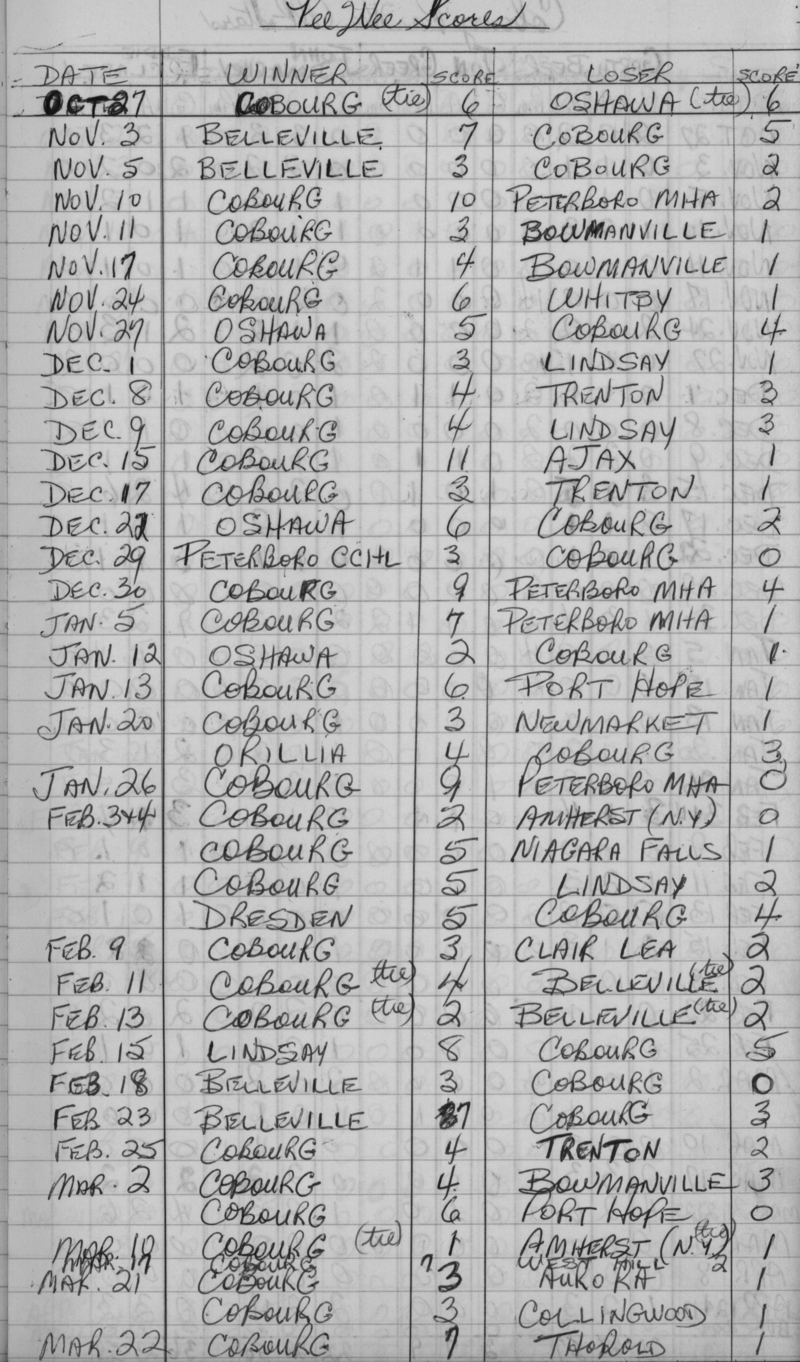 Pee Wee Scores
DATE WINNER SCORE LOSER SCORE
OCT 27 COBOURG (tie) 6 OSHAWA (tie) 6
NOV. 3 BELLEVILLE 7 COBOURG 5
NOV. 5 BELLEVILLE 3 COBOURG 2
NOV. 10 COBOURG 10 PETERBORO MHA 2
NOV. 11 COBOURG 3 BOWMANVILLE 1
NOV. 17 COBOURG 4 BOWMANVILLE 1
NOV. 24 COBOURG 6 WHITBY 1
NOV. 27 OSHAWA 5 COBOURG 4
DEC. 1 COBOURG 3 LINDSAY 1
DEC. 8 COBOURG 4 TRENTON 3
DEC. 9 COBOURG 4 LINDSAY 3
DEC. 15 COBOURG 11 AJAX 1
DEC. 17 COBOURG 3 TRENTON 1
DEC. OSHAWA 6 COBOURG 2
DEC. 29 PETERBORO CCHL 3 COBOURG 0
DEC. 30 COBOURG 9 PETERBORO MHA 4
JAN. 5 COBOURG 7 PETERBORO MHA 1
JAN. 12 OSHAWA 2 COBOURG 1
JAN. 13 COBOURG 6 PORT HOPE 1
JAN. 20 COBOURG 3 NEWMARKET 1
ORILLIA 4 COBOURG 3
JAN. 26 COBOURG 9 PETERBORO MHA 0
FEB. 3+4 COBOURG 2 AMHERST (N.Y.) 0
COBOURG 5 NIAGARA FALLS 1
COBOURG 5 LINDSAY 2
DRESDEN 5 COBOURG 4
FEB. 9 COBOURG 3 CLAIR LEA 2
FEB. 11 COBOURG (tie) 4 BELLEVILLE (tie) 2
FEB. 13 COBOURG (tie) 2 BELLEVILLE (tie) 2
FEB. 15 LINDSAY 8 COBOURG 5
FEB. 18 BELLEVILLE 3 COBOURG 0
FEB 23 BELLEVILLE 7 COBOURG 3
FEB. 25 COBOURG 4 TRENTON 2
MAR. 2 COBOURG 4 BOWMANVILLE 3
COBOURG 6 PORT HOPE 0
MAR. 10 COBOURG (tie) 1 AMHERST (N.Y.) (tie) 1
MAR. 17 COBOURG 7 WEST HILL 2
MAR. 21 COBOURG 3 AURORA 1
COBOURG 3 COLLINGWOOD 1
MAR. 22 COBOURG 7 THOROLD 1